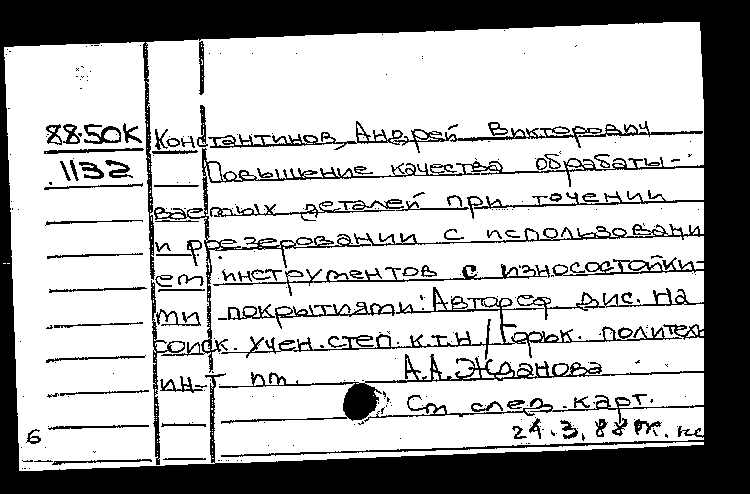 88.50К Константинов, Андрей Викторович
1132 Повышение качества обрабаты-
ваемых деталей при точении
и фрезеровании с использовани
ем инструментов с износостойки-
ми покрытиями: Автореф дис. на
соиск. учен. степ. к.т.н / Горьк. политехн
ин-т им. А.А. Жданова
См. след. карт.
6 24.3.88